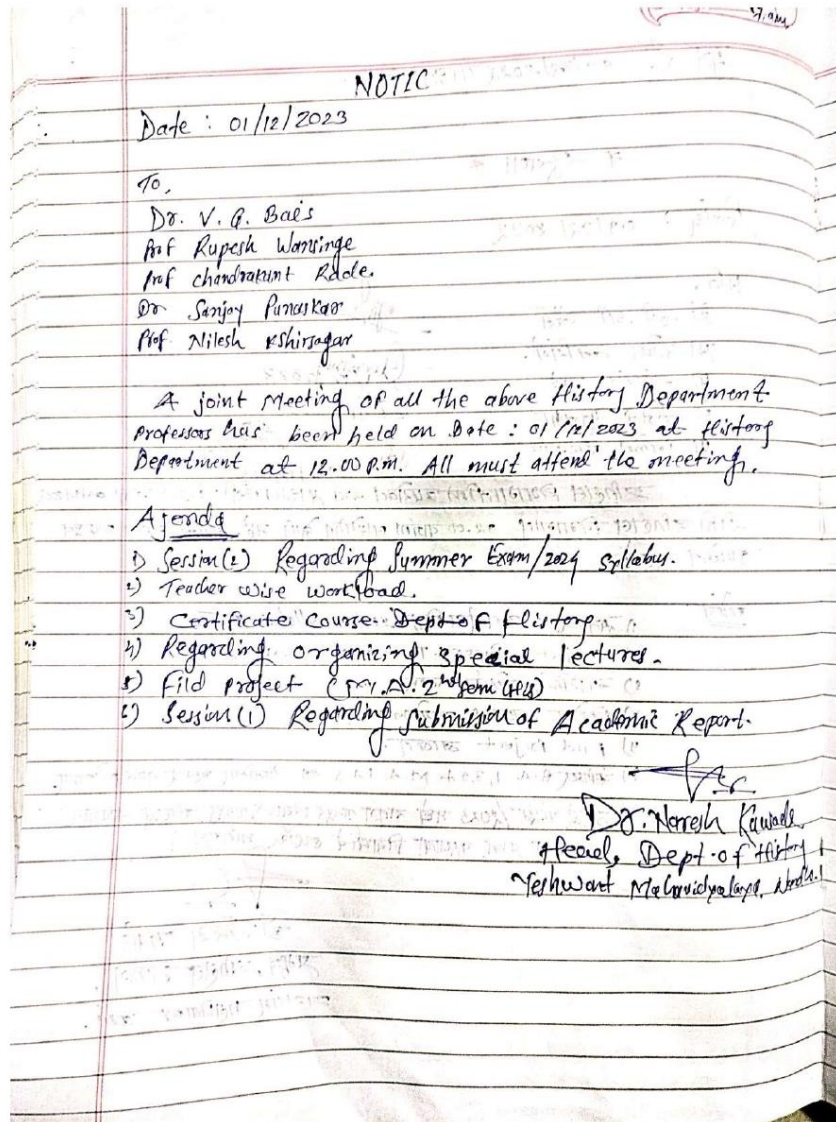 NOTIC
Date : 01/12/2023
To,
Dr. V. G. Bais
Prof Rupesh Wansinge
Prof chandrakant Rade.
Dr Sanjay Punaskar
Prof Nilesh kshirsagar
A joint Meeting of all the above History Department
Professors has been held on Date : 01/12/2023 at History
Department at 12.00 P.m. All must attend the meeting.
Agenda
1) Session(2) Regarding Summer Exam/2024 Syllabus.
2) Teacher wise workload.
3) "Certificate" Course Dept of History
4) Regarding organizing special lectures.
5) Fild Project (M.A. 2nd sem (His)
6) Session(1) Regarding Submission of Academic Report.
Dr. Naresh Kawade
Head, Dept. of History
Yeshwant Mahavidyalaya,